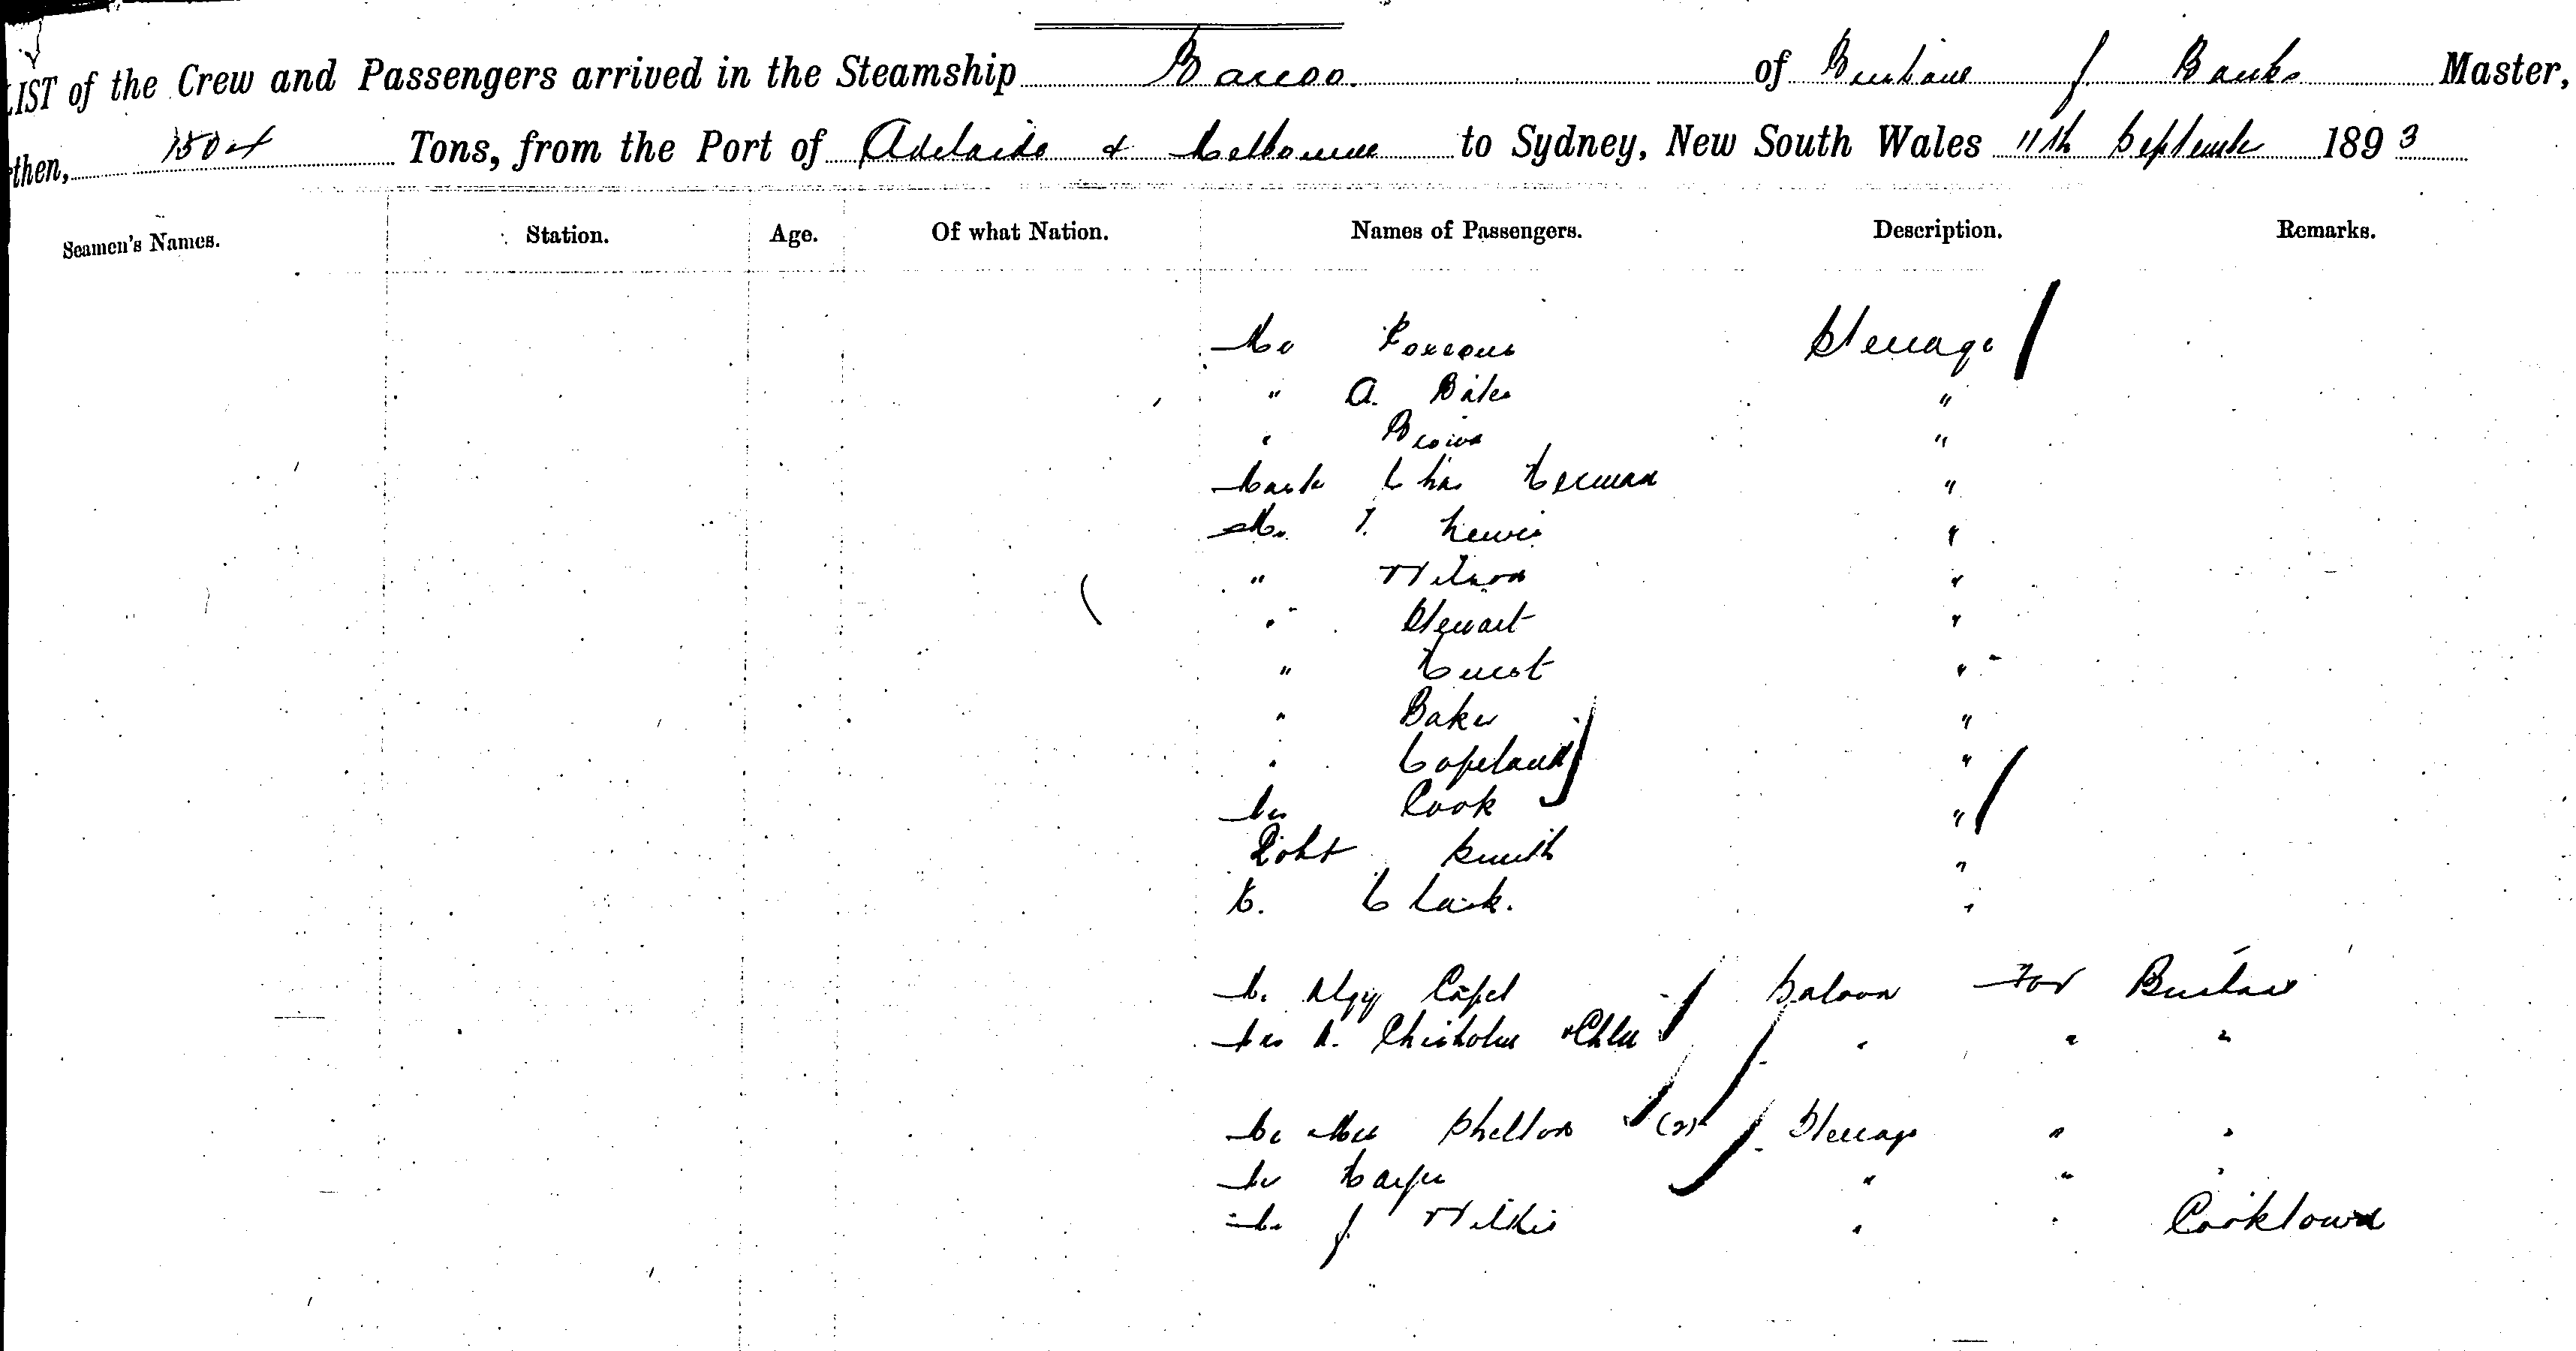 LIST of the Crew and Passengers arrived in the Steamship Barcoo. of Brisbane J. Banks Master,
then, 1504 Tons, from the Port of Adelaide & Melbourne to Sydney, New South Wales 11th September 1893
Seamen's Names. Station. Age. Of what Nation. Names of Passengers. Description. Remarks.
Mr Steerage
" A. Bates "
" Brown "
Mastr Chas "
Mr. T. Lewis "
" Wilson "
" Stewart "
" Guest "
" Baker "
" Copeland "
Mr Cook "
Robt Smith "
Clark. "
Mr Algy Capel Saloon For Brisbane
Mrs A. Chisholm " " "
Mr Mrs Shelton (2) Steerage " "
Mr Harper " " "
Mr J. Wilkie " " Cooktown